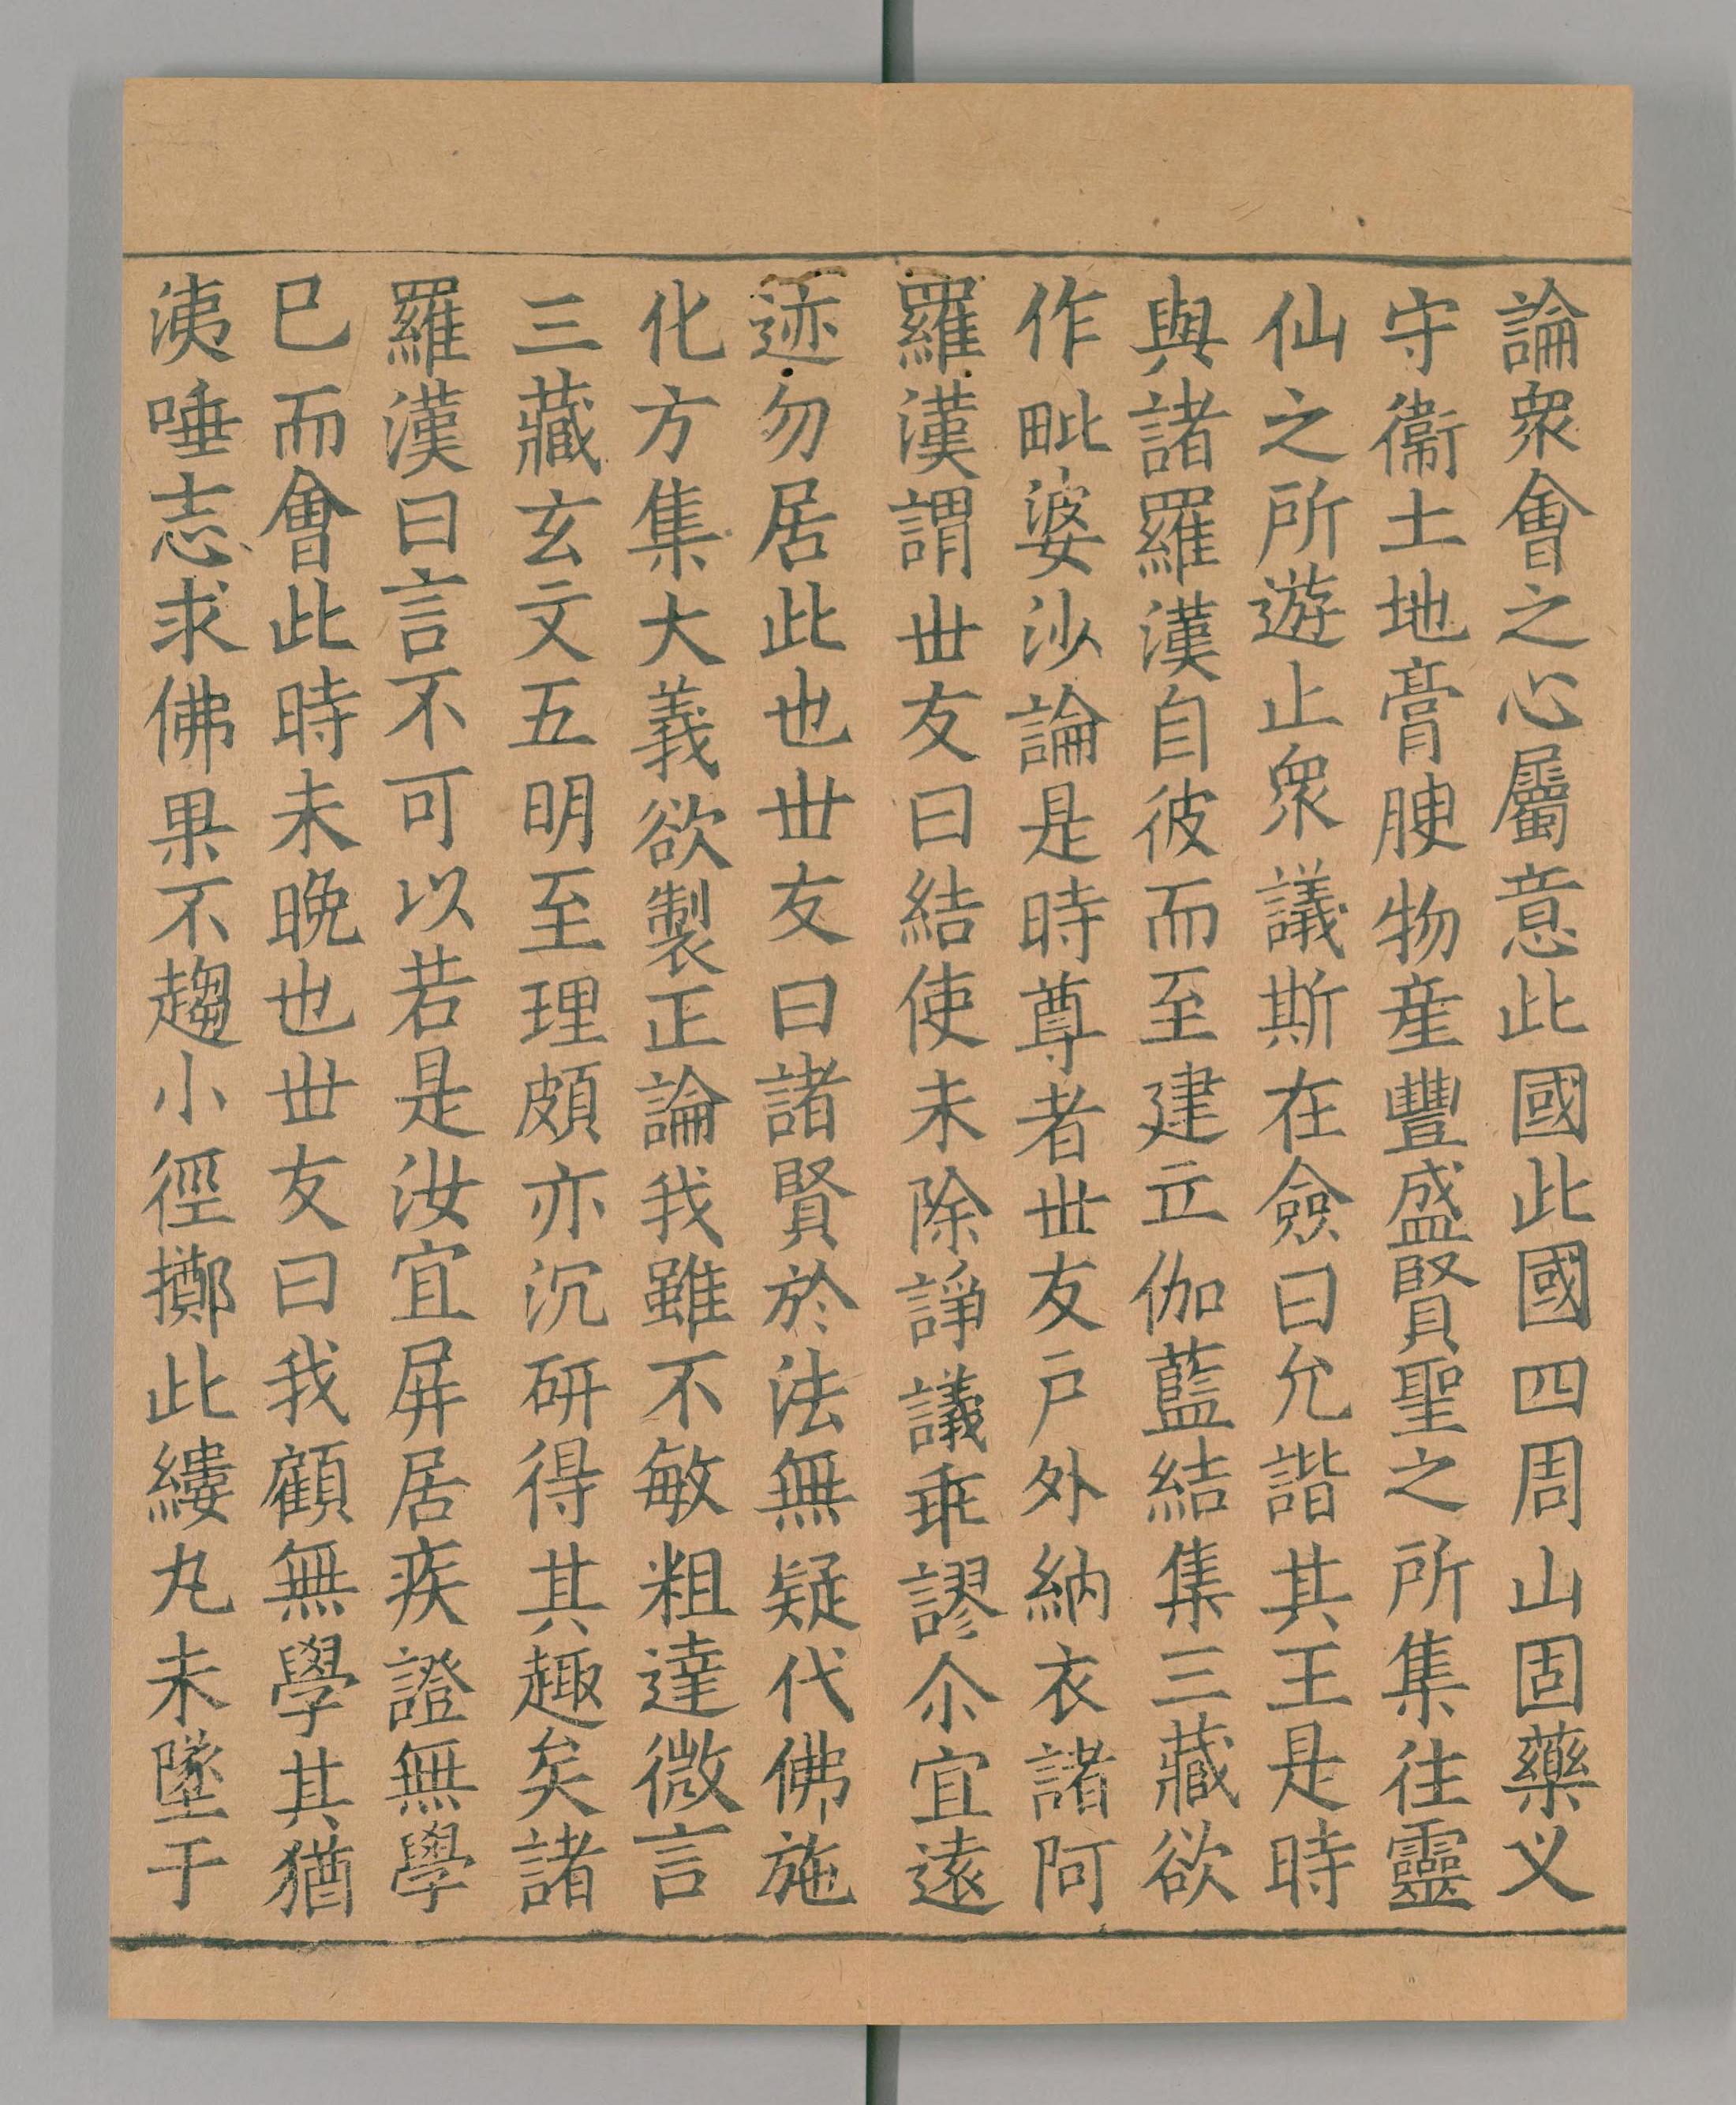 論衆會之心屬意此國此國四周山固藥义
守衞土地膏腴物産豐盛賢聖之所集往靈
仙之所遊止衆議斯在僉曰允諧其王是時
與諸羅漢自彼而至建立伽藍結集三藏欲
作毗婆沙論是時尊者丗友戶外納衣諸阿
羅漢謂丗友曰結使未除諍議乖謬尒宜遠
迹勿居此也丗友曰諸賢於法無疑代佛施
化方集大義欲製正論我雖不敏粗達微言
三藏玄文五明至理頗亦沉研得其趣矣諸
羅漢曰言不可以若是汝宜屏居疾證無學
已而會此時未晚也丗友曰我顧無學其猶
洟唾志求佛果不趨小徑擲此縷丸未墜于